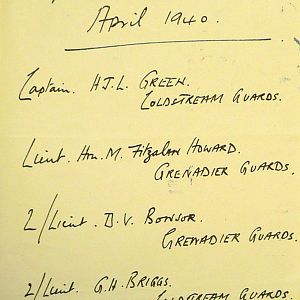 April 1940.
Captain. H.J.L. GREEN.
COLDSTREAM GUARDS.
Lieut. Hon. M. Fitzalan HOWARD.
GRENADIER GUARDS.
2/Lieut. D.V. BONSOR.
GRENADIER GUARDS.
2/Lieut. G.H. BRIGGS.
COLDSTREAM GUARDS.